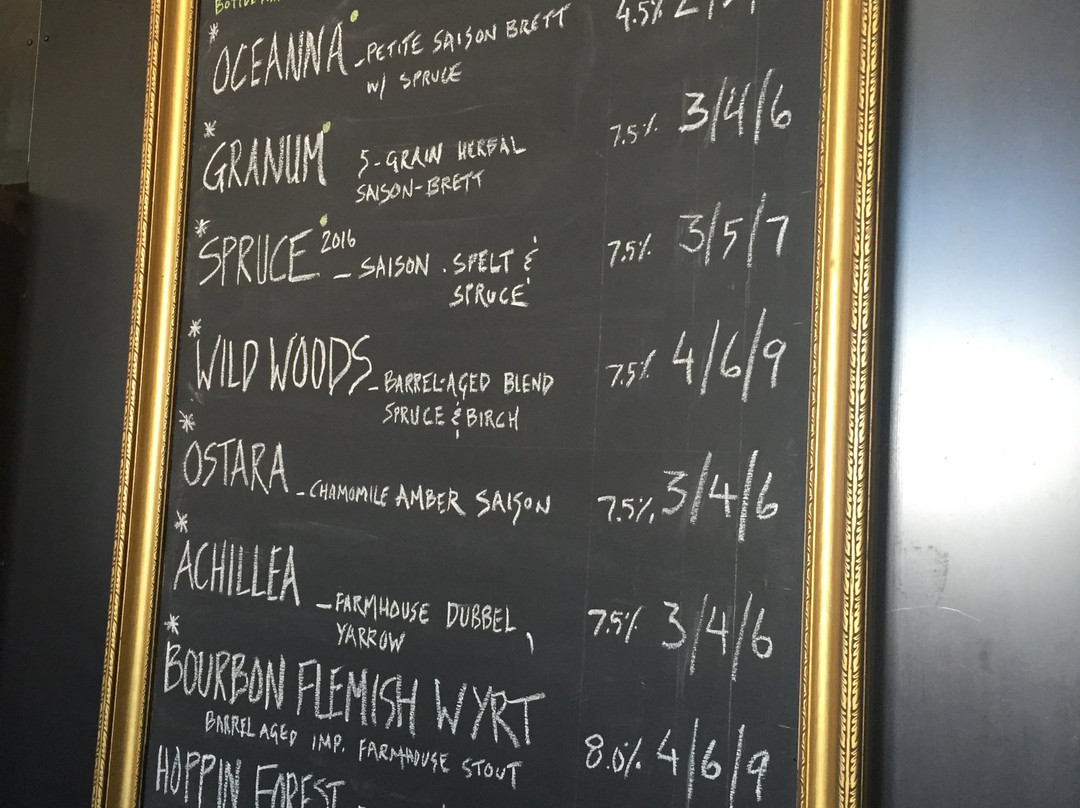 * OCEANNA - PETITE SAISON BRETT 4.5%
W/ SPRUCE
* GRANUM 5-GRAIN HERBAL 7.5% 3/4/6
SAISON-BRETT
* SPRUCE 2016 - SAISON . SPELT & 7.5% 3/5/7
SPRUCE
* WILD WOODS - BARREL-AGED BLEND 7.5% 4/6/9
SPRUCE & BIRCH
* OSTARA - CHAMOMILE AMBER SAISON 7.5% 3/4/6
* ACHILLEA - FARMHOUSE DUBBEL, 7.5% 3/4/6
YARROW
* BOURBON FLEMISH WYRT
BARREL AGED IMP. FARMHOUSE STOUT 8.0% 4/6/9
HOPPIN FOREST